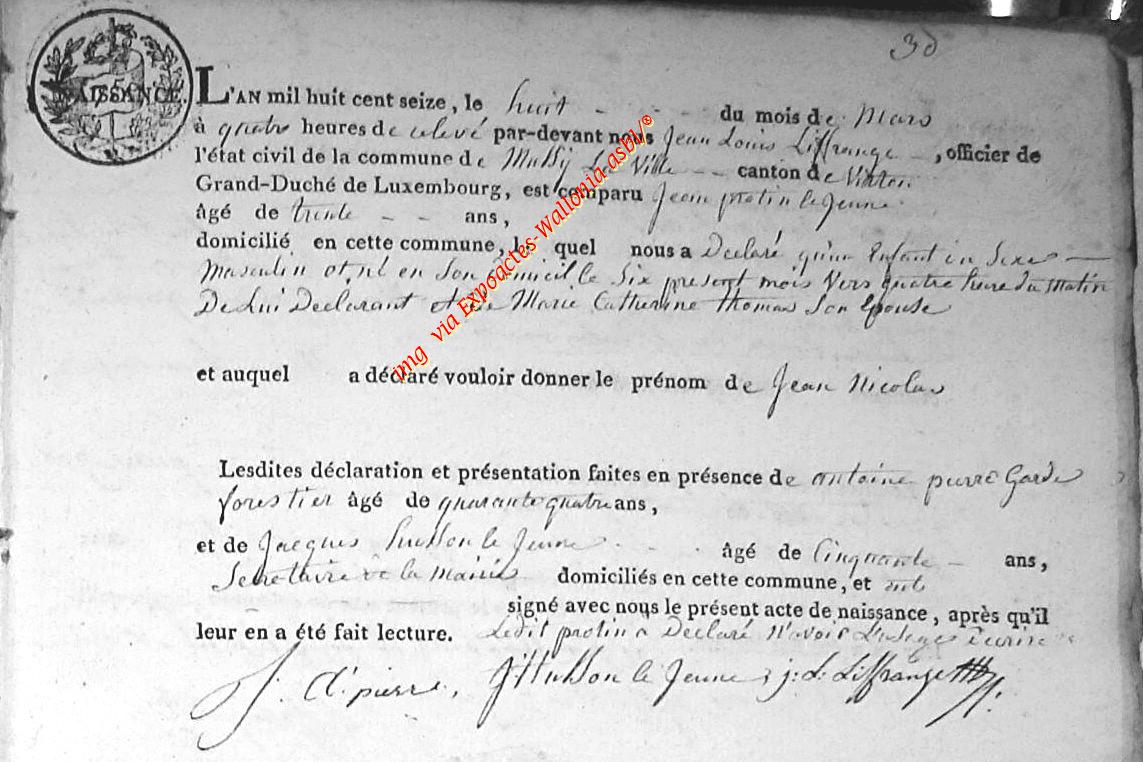 30
NAISSANCE.
L'AN mil huit cent seize, le huit - - - du mois de Mars
à quatre heures de relevé par-devant nous Jean Louis Liffrange -, officier de
l'état civil de la commune de Mussy La Ville - - canton de Virton
Grand-Duché de Luxembourg, est comparu Jean protin le Jeune
âgé de trente - - ans,
domicilié en cette commune, le quel nous a Declaré qu'un Enfant du Sexe
Masculin et né en Son domicil le Six present mois Vers quatre heure du Matin
De Lui Declarant et de Marie Catherine thomas Son Epouse
et auquel a déclaré vouloir donner le prénom de Jean Nicolas
Lesdites déclaration et présentation faites en présence de antoine pierre Garde
forestier âgé de quarante quatre ans,
et de Jacques husson le Jeune - - âgé de Cinquante - ans,
Secretaire de la Mairie domiciliés en cette commune, et ont
signé avec nous le présent acte de naissance, après qu'il
leur en a été fait lecture. Ledit protin a Declaré N'avoir L'usage
A. pierre, J Husson le Jeune j. L. Liffrange
img via Expoactes-Wallonia-asbl/®